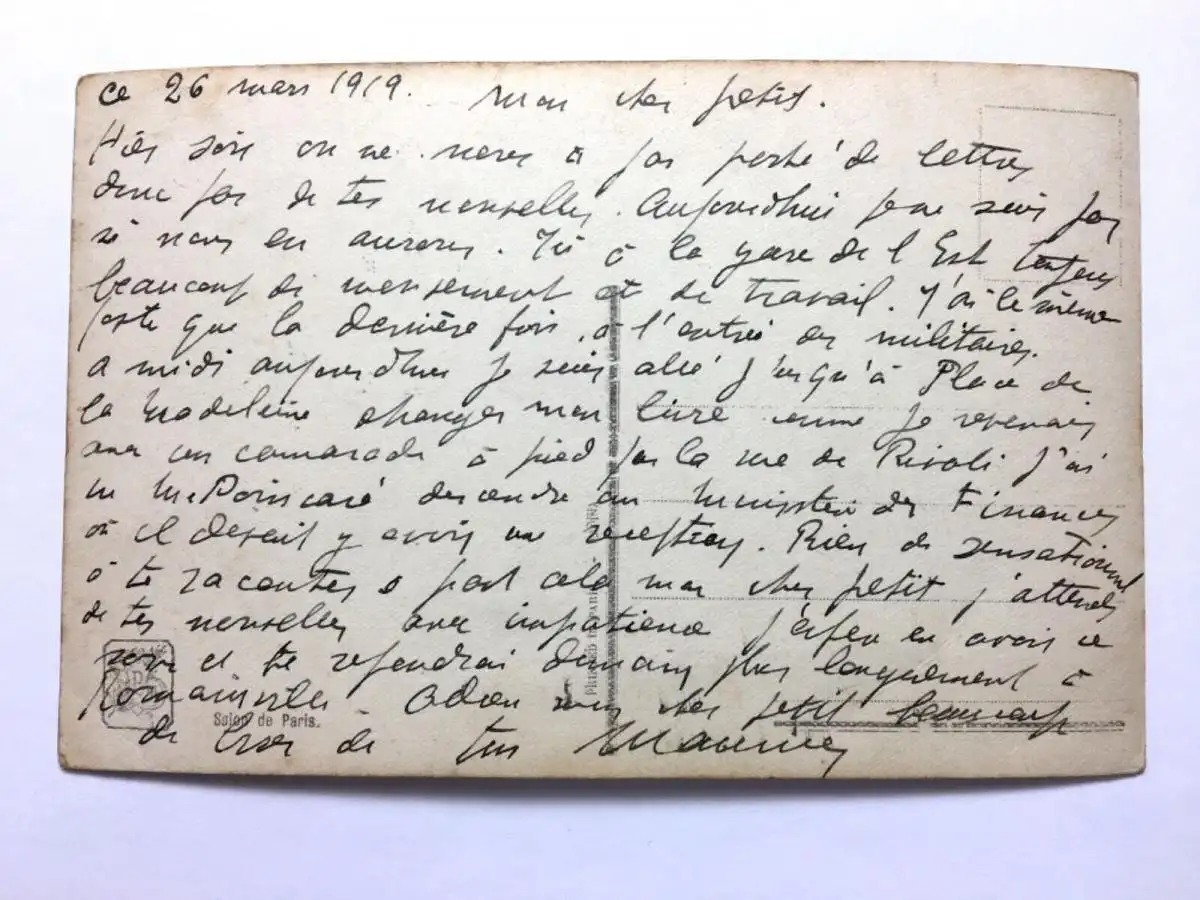 ce 26 mars 1919. Mon cher petit.
Hier soir on ne nous a pas porté de lettres
donc pas de tes nouvelles. Aujourdhui je ne sais pas
si nous en aurons. Ici à la gare de l'Est toujours
beaucoup de mouvement et de travail. J'ai le même
poste que la dernière fois, à l'entrée des militaires.
a midi aujourdhui je suis allé j'usqu'à Place de
la Madeleine changer mon livre comme je revenais
avec un camarade à pied par la rue de Rivoli j'ai
vu Mr Poincaré descendre au Ministère des Finances
où il devait y avoir une reception. Rien de sensationnel
à te raconter a part cela mon cher petit j'attends
de tes nouvelles avec impatience j'espère en avoir ce
soir et te repondrai demain plus longuement à
Romainville. Adieu mon cher petit beaucoup
de de ton Maurice
Salon de Paris.
PRINTED IN PARIS